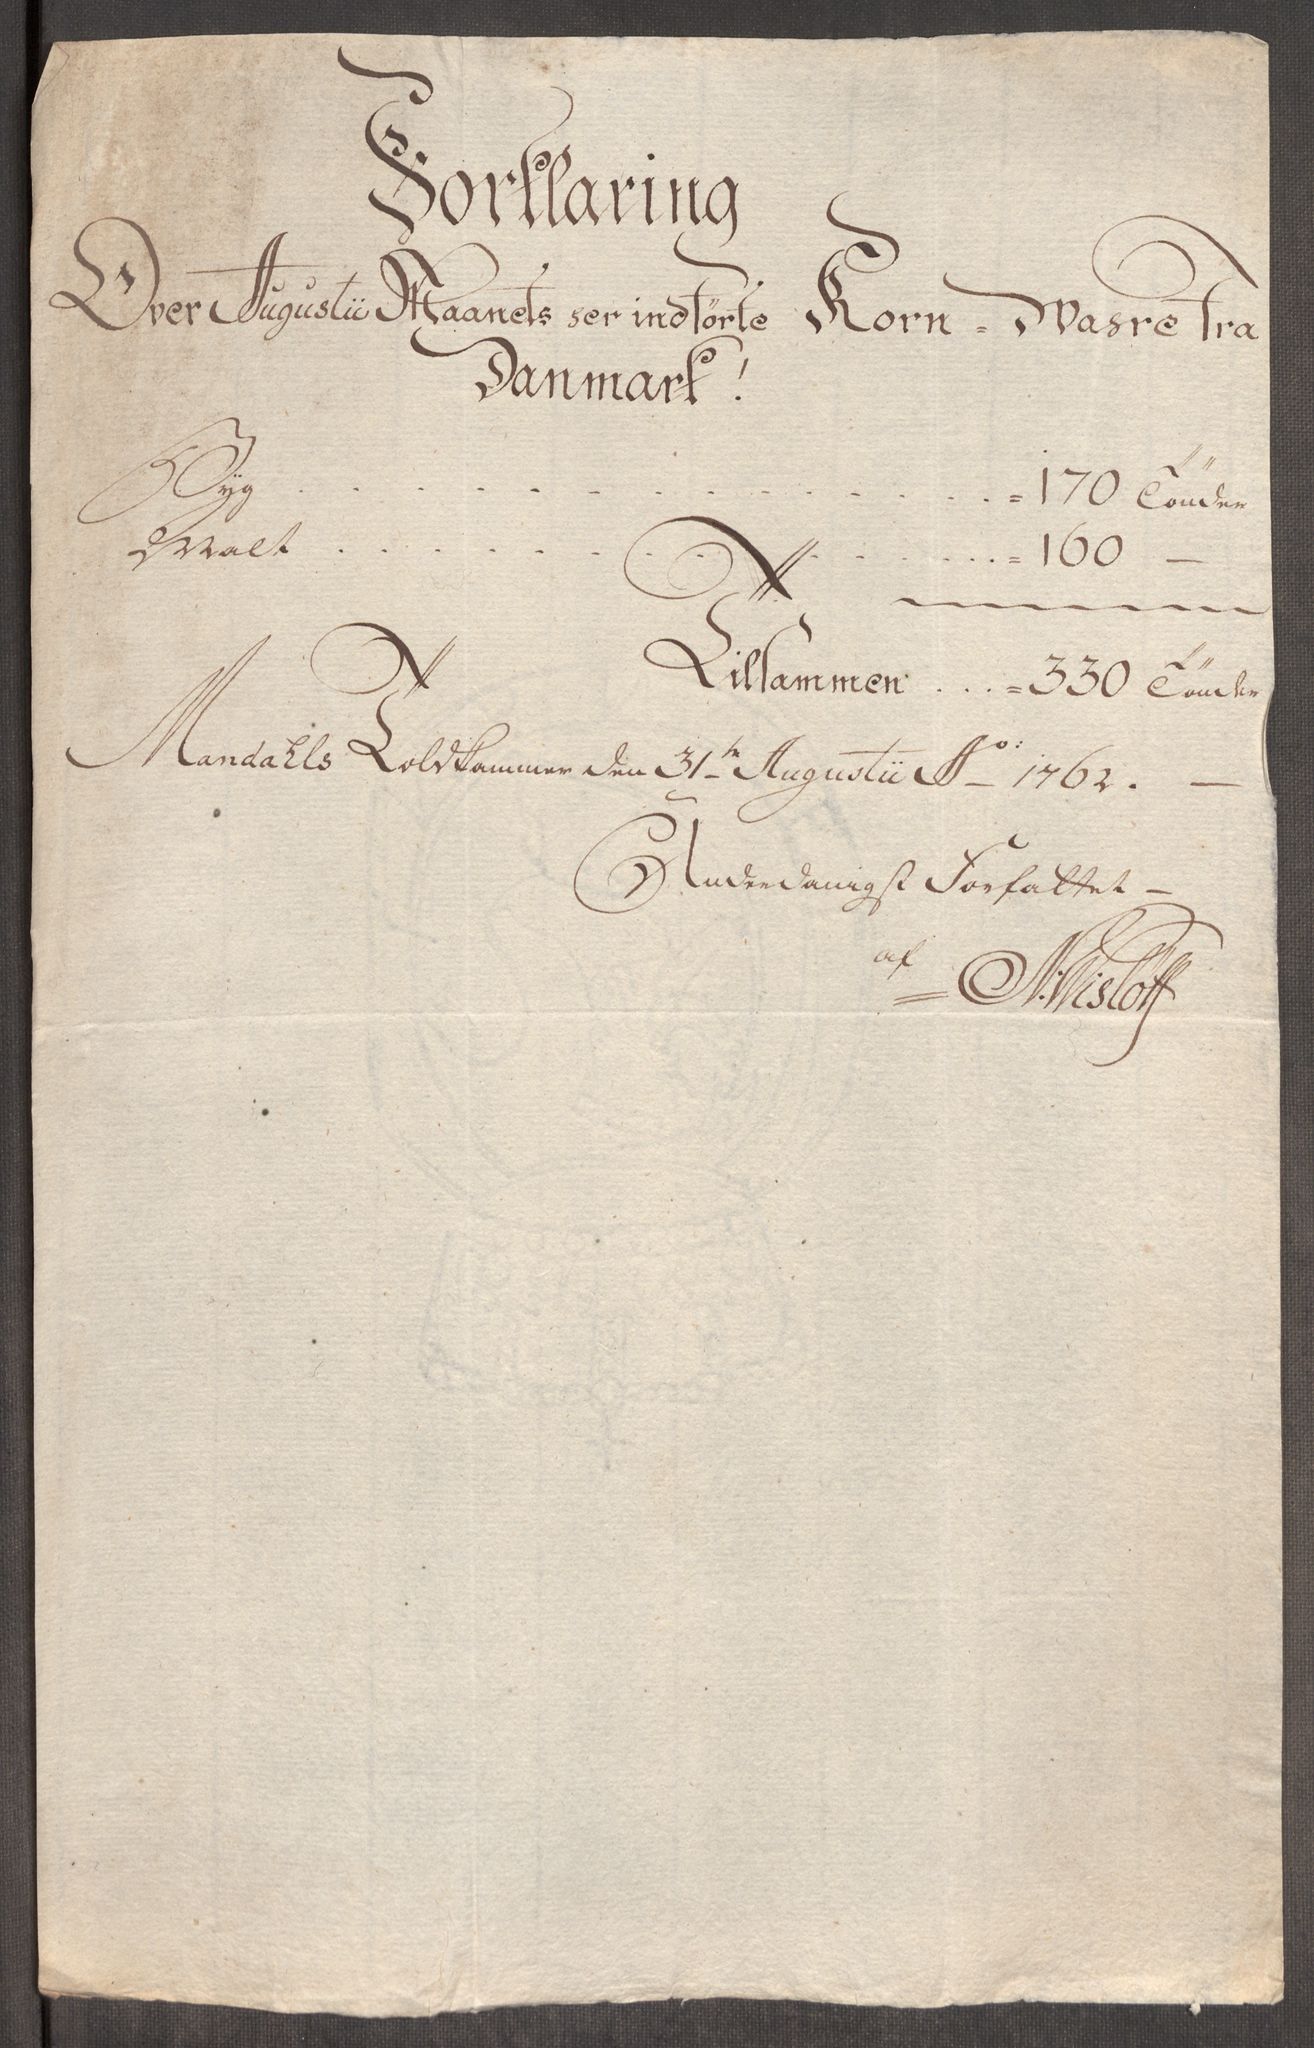 Forklaring
Over Augustii Maanets her indförte Korn-Wahre fra
Danmark!
Byg . . . . . . . . . . . = 170 Tönder
Malt . . . . . . . . . . . = 160 —
Tilsammen . . . = 330 Tönder
Mandahls Toldkammer den 31te Augustii Ao: 1762. —
Underdanigst Forfattet —
af N: Wisloff